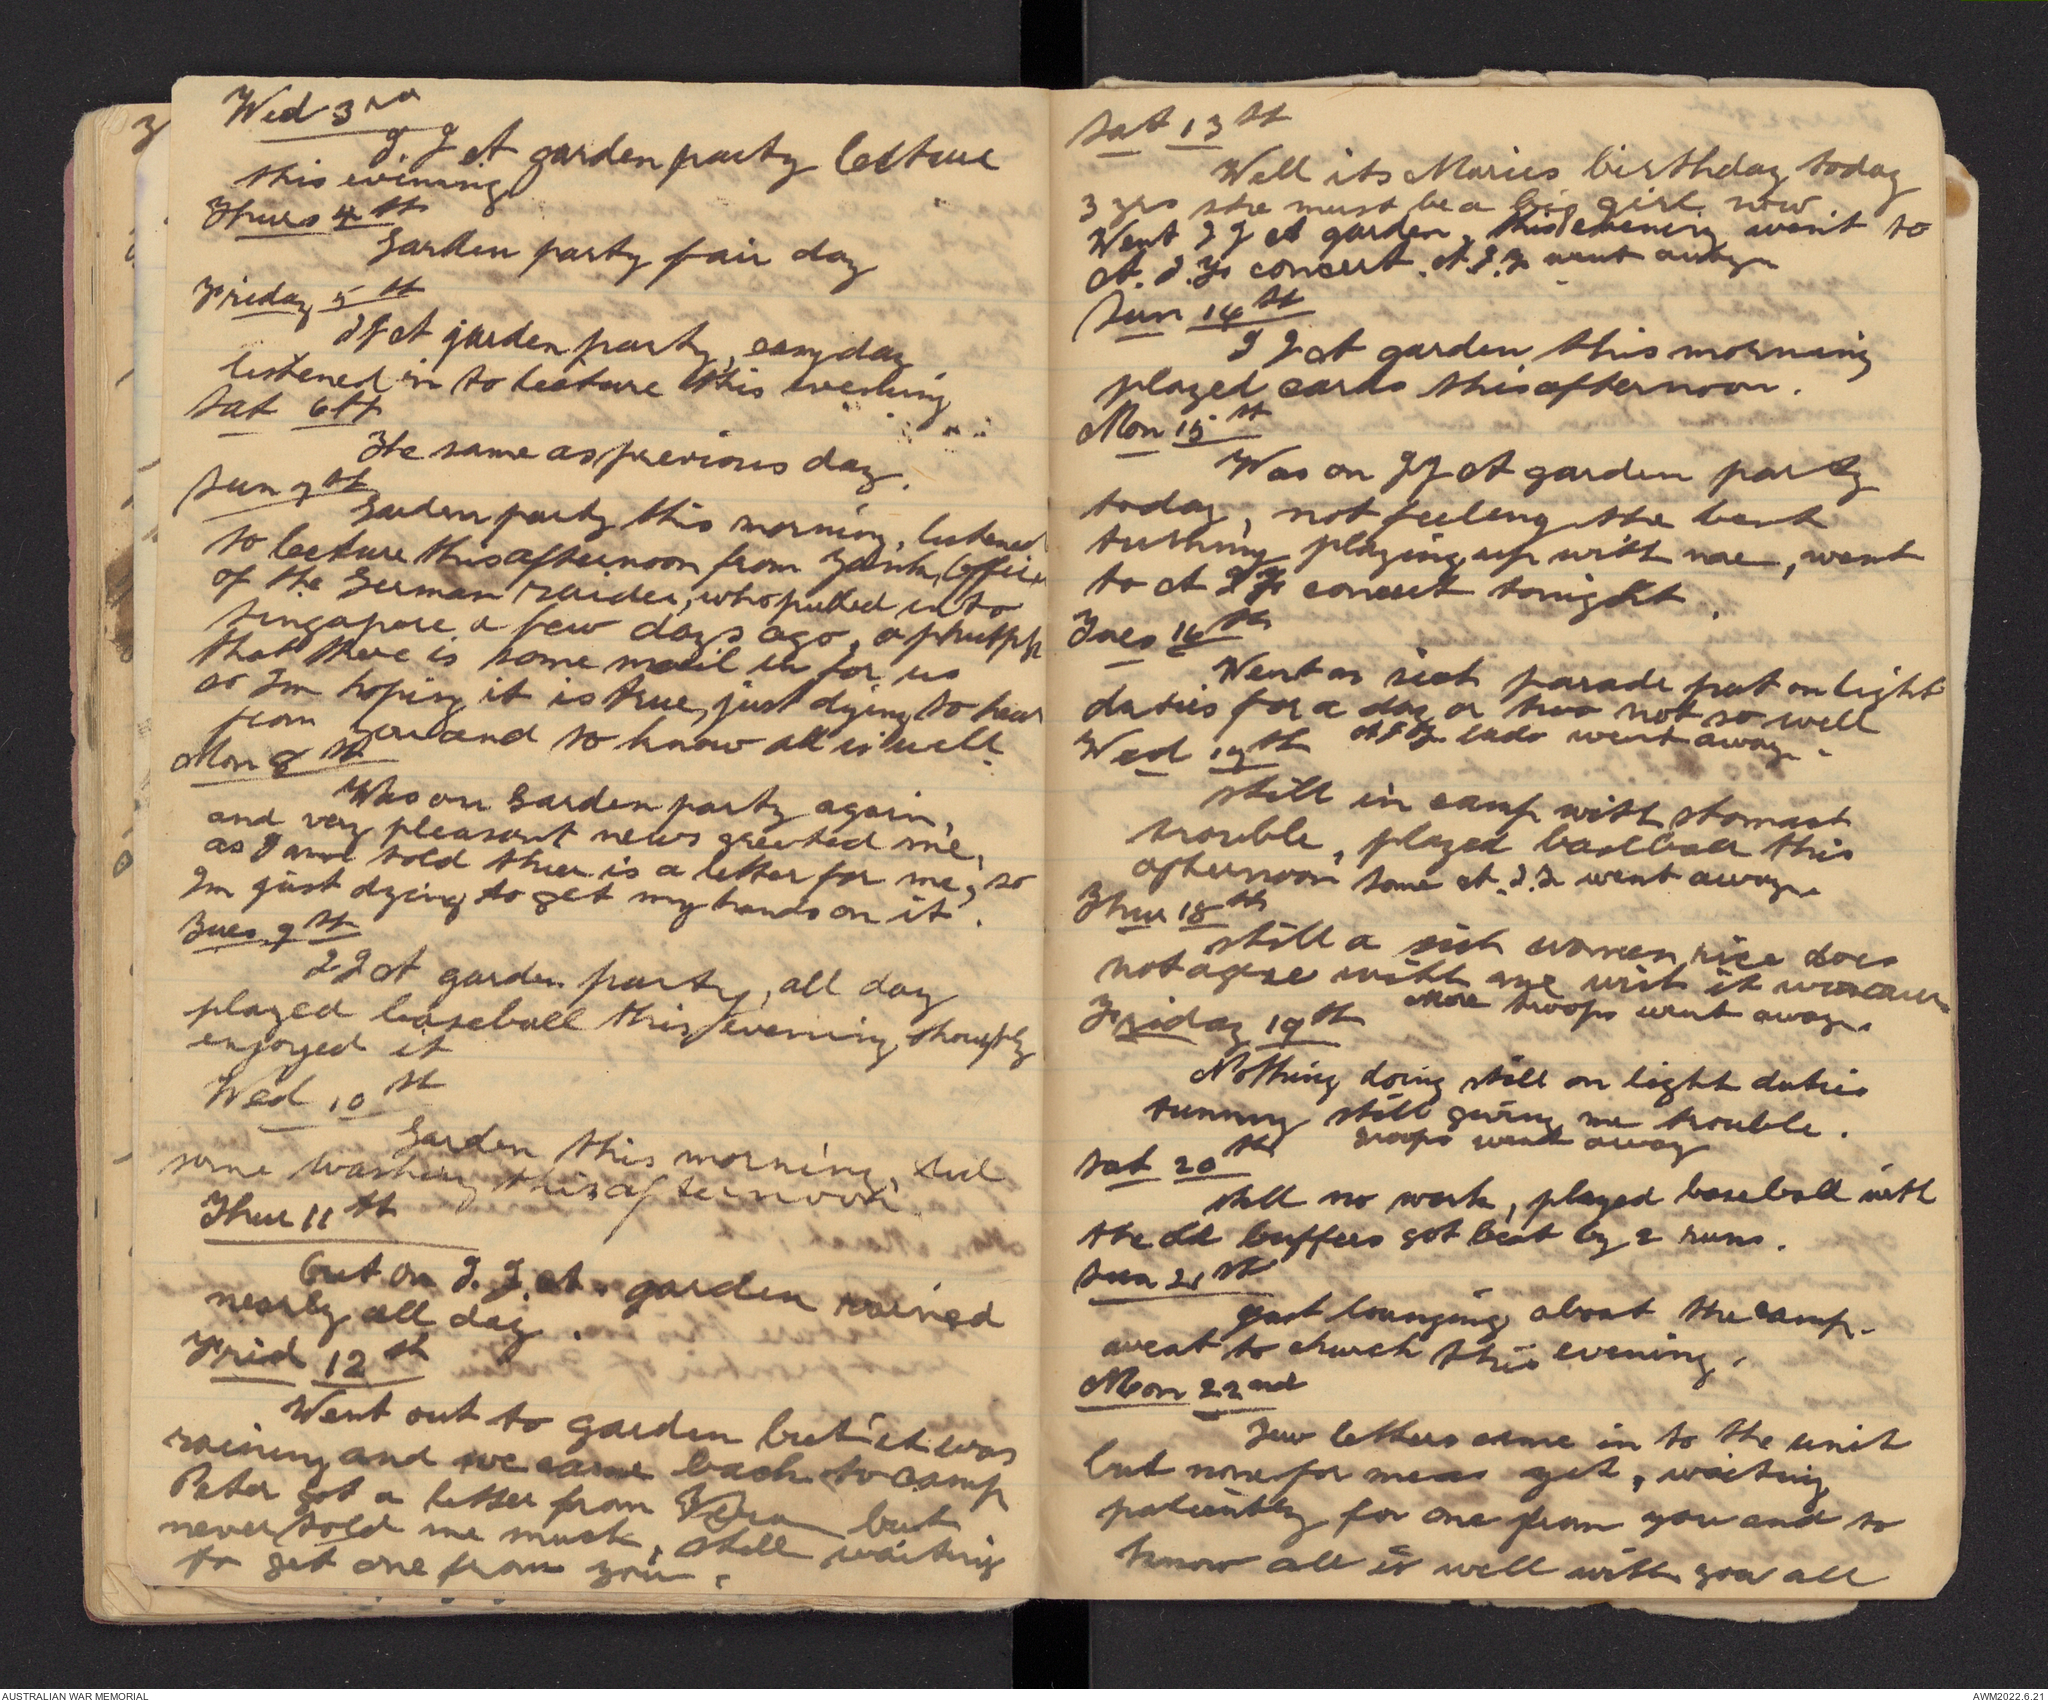 Wed 3rd
I. J. A garden party lecture
this evening
Thurs 4th
Garden party fair day
Friday 5th
IJA garden party, easy day
listened in to lecture this evening
Sat 6th
The same as previous day.
Sun 7th
Garden party this morning, listened
to lecture this afternoon from Yank, (officer
of the German raider, who pulled in to
Singapore a few days ago,
that there is some mail in for us
so Im hoping it is true, just dying to hear
from you and to know all is well.
Mon 8th
Was on Garden party again,
and very pleasant news greeted me,
as I am told there is a letter for me, so
Im just dying to get my hands on it.
Tues 9th
IJA garden party, all day
played baseball this evening,
enjoyed it
Wed 10th
Garden this morning, did
some washing this afternoon.
Thur 11th
Out on I. J. A. garden rained
nearly all day.
Frid 12th
Went out to garden but it was
raining and we came back to camp
Peter got a letter from but
never told me much, still waiting
to get one from you.
Sat 13th
Well its Maries birthday today
3 yrs she must be a big girl now
Went IJA garden, this evening went to
A. I. Fs concert. A.I.F. went away.
Sun 14th
IJA garden this morning
played cards this afternoon.
Mon 15th
Was on IJA garden party
today, not feeling the best
tummy playing up with me, went
to A I Fs concert tonight.
Tues 16th
Went on sick parade put on light
duties for a day or two not so well
A I F lads went away.
Wed 17th
Still in camp with stomach
trouble, played baseball this
afternoon some A.I.F. went away.
Thur 18th
Still a sick women, rice does
not agree with me
More troops went away.
Friday 19th
Nothing doing still on light duties
tummy still giving me trouble.
Troops went away
Sat 20th
still no work, played baseball with
the old buffers got beat by 2 runs.
Sun 21st
Just lounging about the camp.
went to church this evening.
Mon 22nd
Few letters came in to the unit
but none for me as yet, waiting
patiently for one from you and to
know all is well with you all
AUSTRALIAN WAR MEMORIAL
AWM2022.6.21